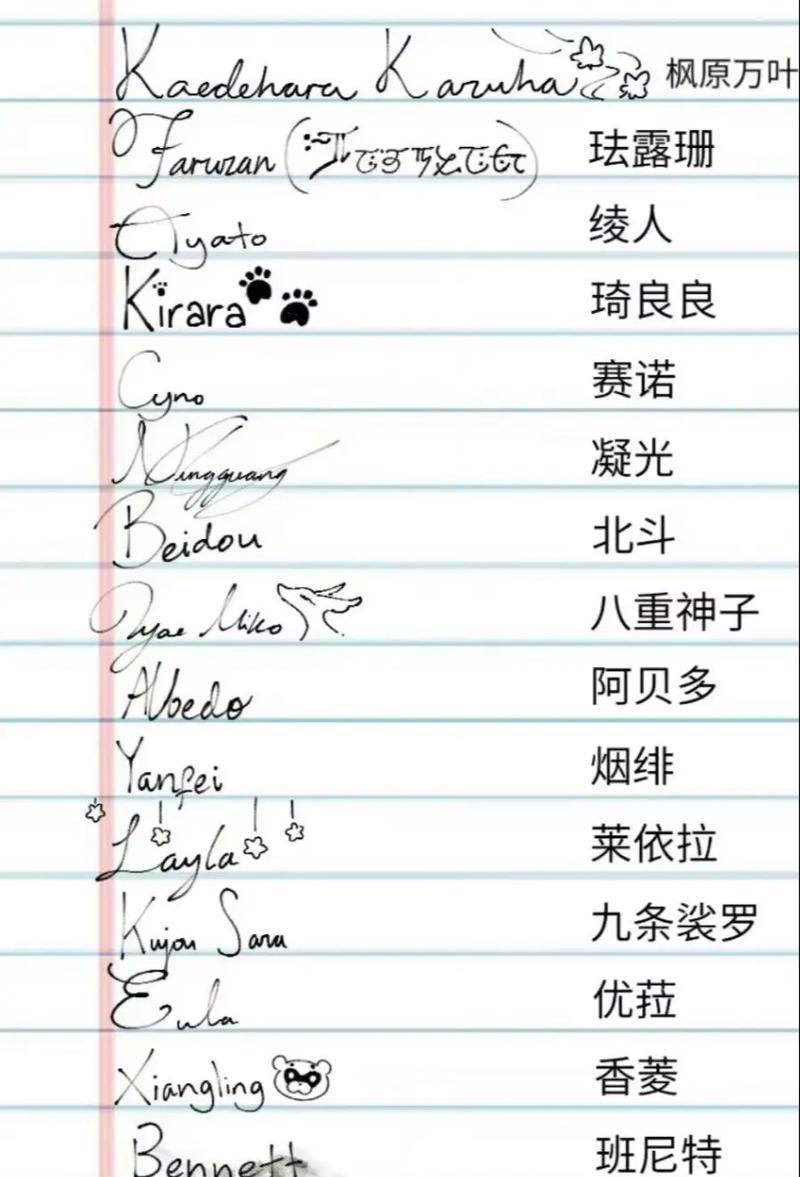 Kaedehara Kazuha 枫原万叶
Faruzan 珐露珊
Ayato 绫人
Kirara 琦良良
Cyno 赛诺
Ningguang 凝光
Beidou 北斗
Yae Miko 八重神子
Albedo 阿贝多
Yanfei 烟绯
Layla 莱依拉
Kujou Sara 九条裟罗
Eula 优菈
Xiangling 香菱
Bennett 班尼特